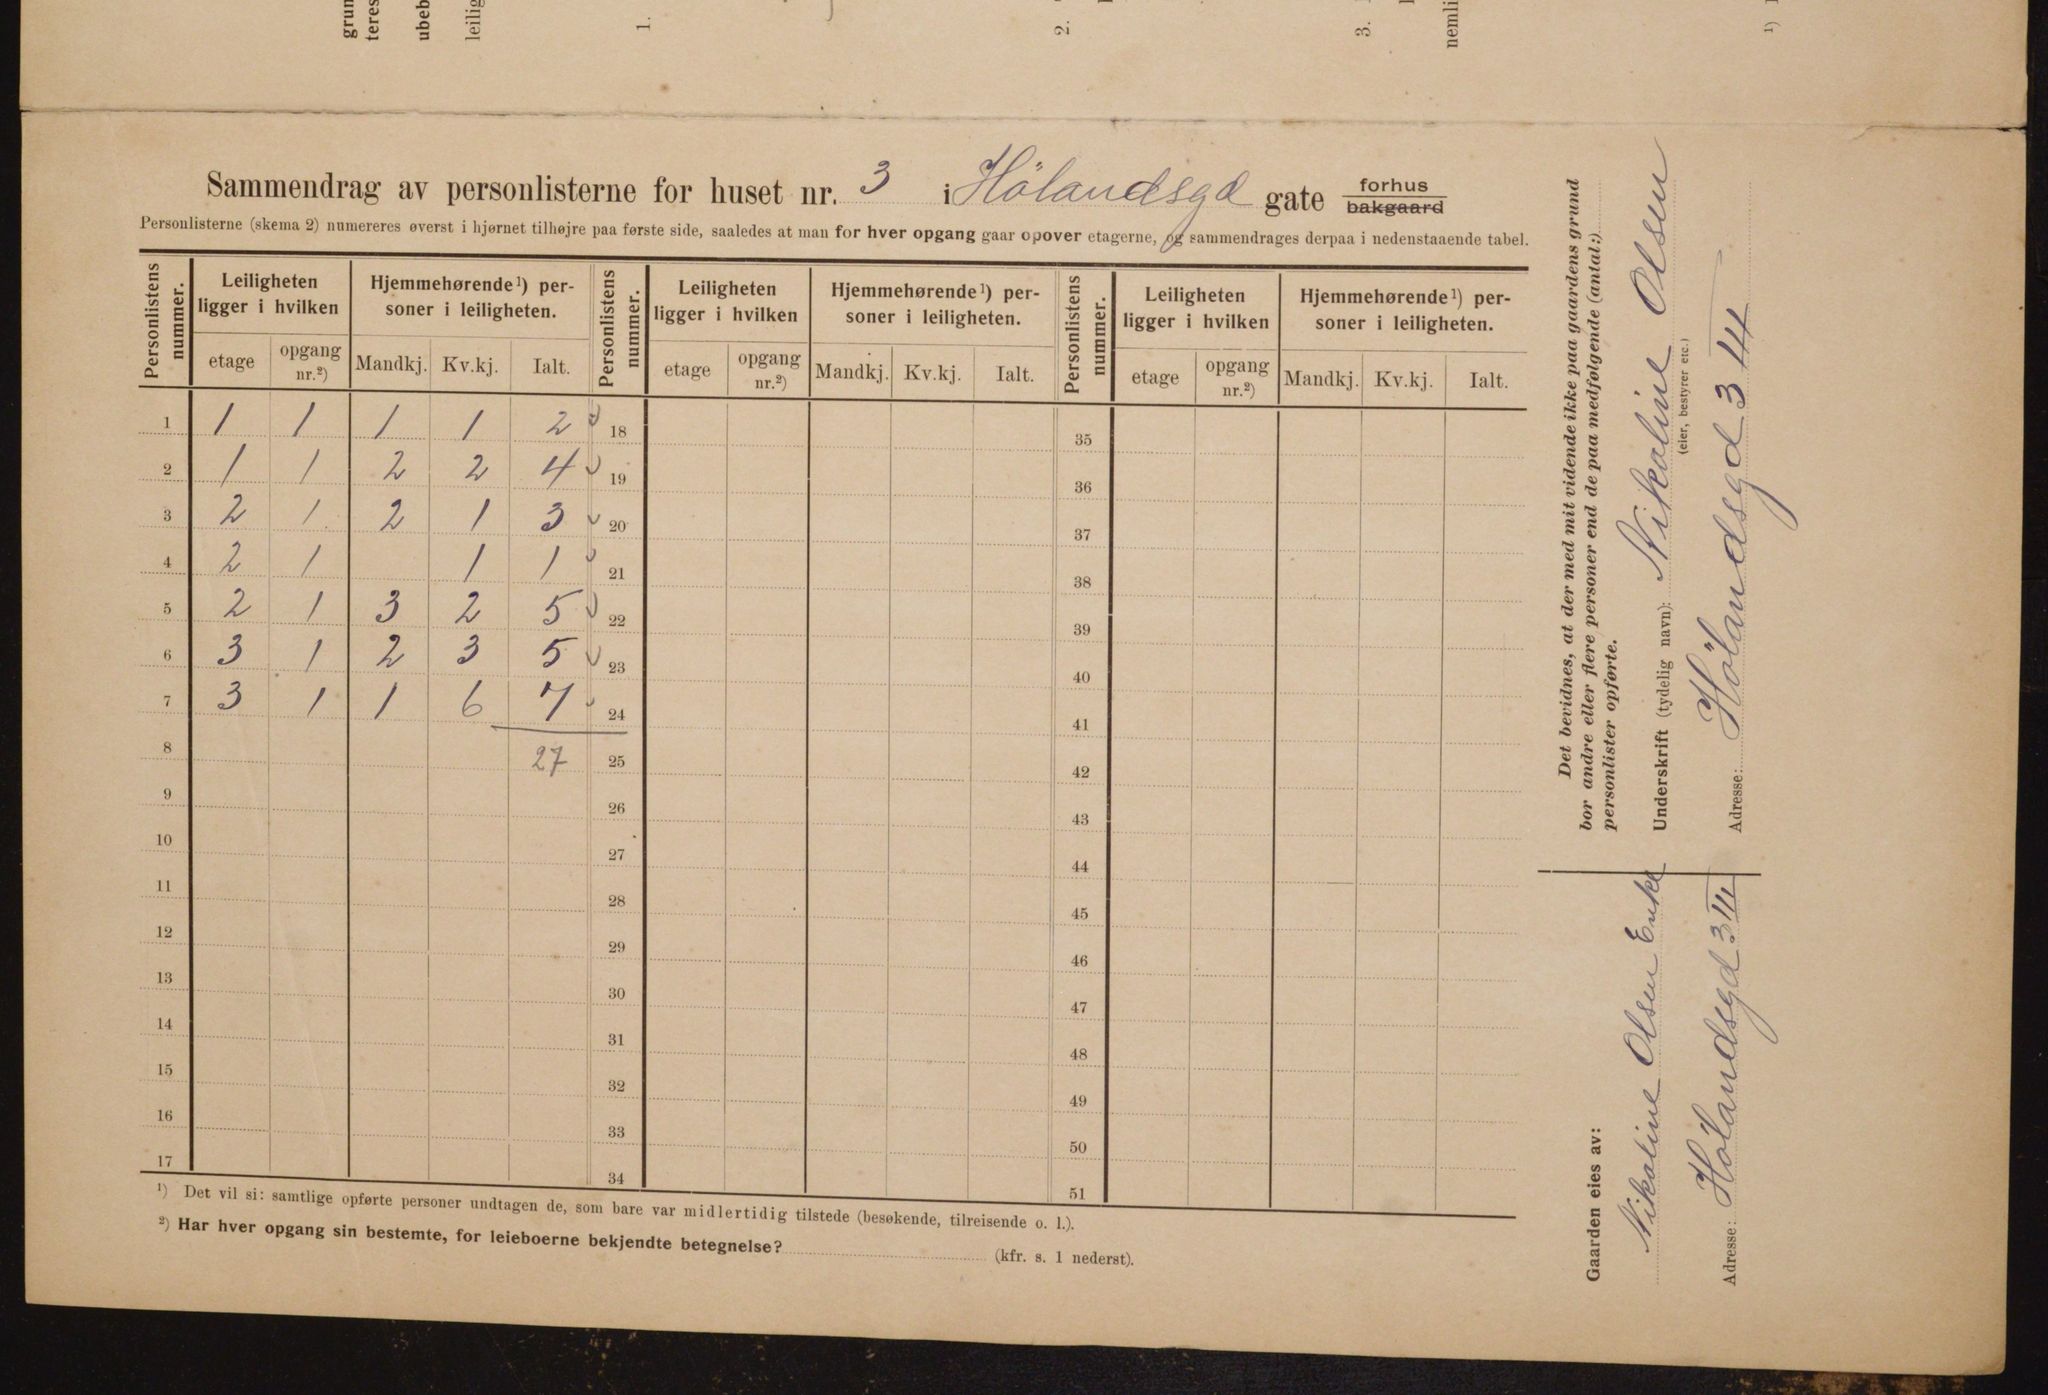 grun
teres
ubeb
leilig
1.
2.
3.
nemli
¹)
Sammendrag av personlisterne for huset nr. 3 i Hölandsgd gate forhus bakgaard
Personlisterne (skema 2) numereres øverst i hjørnet tilhøjre paa første side, saaledes at man for hver opgang gaar opover etagerne, og sammendrages derpaa i nedenstaaende tabel.
Personlistens nummer. Leiligheten ligger i hvilken Hjemmehørende¹) personer i leiligheten. Personlistens nummer. Leiligheten ligger i hvilken Hjemmehørende¹) personer i leiligheten. Personlistens nummer. Leiligheten ligger i hvilken Hjemmehørende¹) personer i leiligheten.
etage opgang nr.²) Mandkj. Kv.kj. Ialt. etage opgang nr.²) Mandkj. Kv.kj. Ialt. etage opgang nr.²) Mandkj. Kv.kj. Ialt.
1 1 1 1 1 2 18 35
2 1 1 2 2 4 19 36
3 2 1 2 1 3 20 37
4 2 1 1 1 21 38
5 2 1 3 2 5 22 39
6 3 1 2 3 5 23 40
7 3 1 1 6 7 24 41
8 27 25 42
9 26 43
10 27 44
11 28 45
12 29 46
13 30 47
14 31 48
15 32 49
16 33 50
17 34 51
¹) Det vil si: samtlige opførte personer undtagen de, som bare var midlertidig tilstede (besøkende, tilreisende o. l.).
²) Har hver opgang sin bestemte, for leieboerne bekjendte betegnelse? (kfr. s. 1 nederst).
Det bevidnes, at der med mit vidende ikke paa gaardens grund
bor andre eller flere personer end de paa medfølgende (antal:)
personlister opførte.
Underskrift (tydelig navn): Nikoline Olsen
(eier, bestyrer etc.)
Adresse: Hölandsgd 3 III
Gaarden eies av:
Nikoline Olsen Enke
Adresse: Hölandsgd 3 III